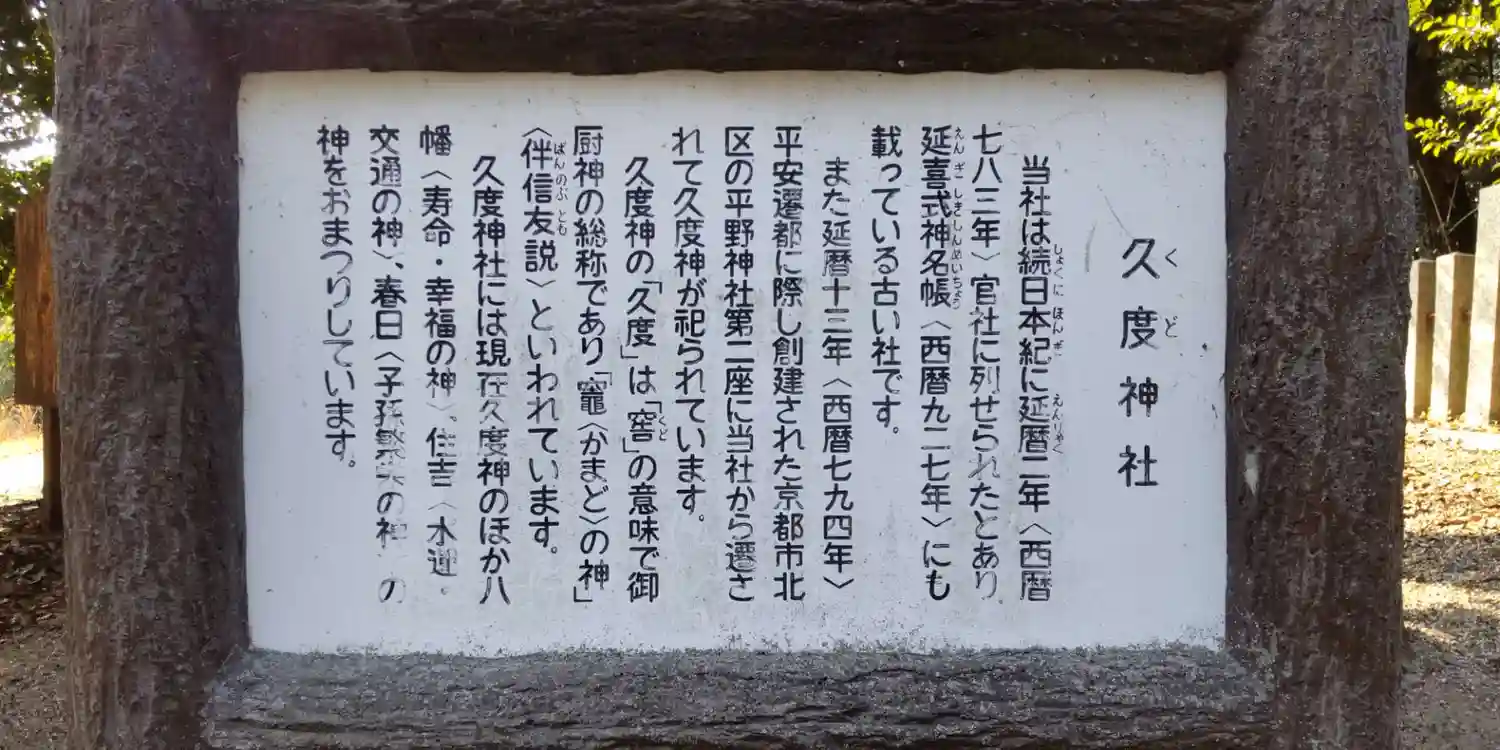 久度神社
当社は続日本紀に延暦二年〈西暦
七八三年〉官社に列せられたとあり
延喜式神名帳〈西暦九二七年〉にも
載っている古い社です。
また延暦十三年〈西暦七九四年〉
平安遷都に際し創建された京都市北
区の平野神社第二座に当社から遷さ
れて久度神が祀られています。
久度神の「久度」は「窖」の意味で御
厨神の総称であり「竈〈かまど〉の神」
〈伴信友説〉といわれています。
久度神社には現在久度神のほか八
幡〈寿命・幸福の神〉、住吉〈水運・
交通の神〉、春日〈子孫繁栄の神〉の
神をおまつりしています。